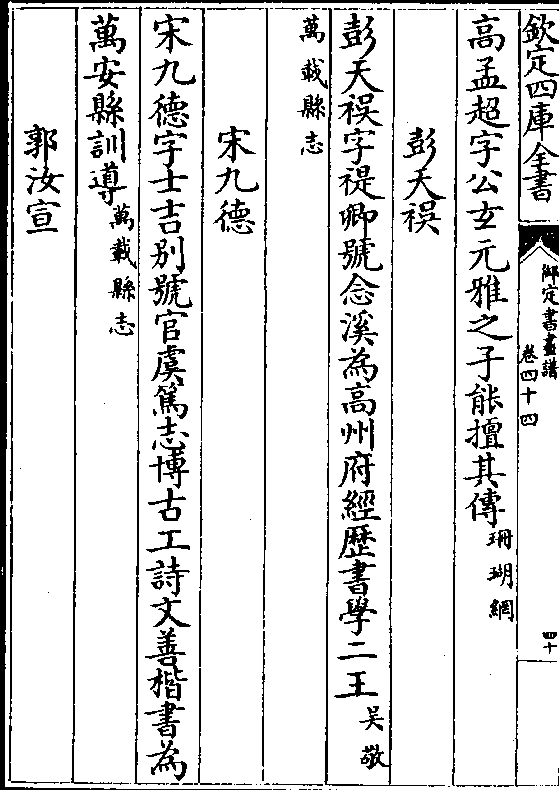 欽定四庫全書
御定書畫譜
卷四十四
四十
高孟超字公玄元雅之子能擅其傳珊瑚網
彭天祦
彭天祦字禔卿號念溪為高州府經歴書學二王吴敬
萬載縣志
宋九德
宋九德字士吉别號官虞篤志博古工詩文善楷書為
萬安縣訓導萬載縣志
郭汝宣